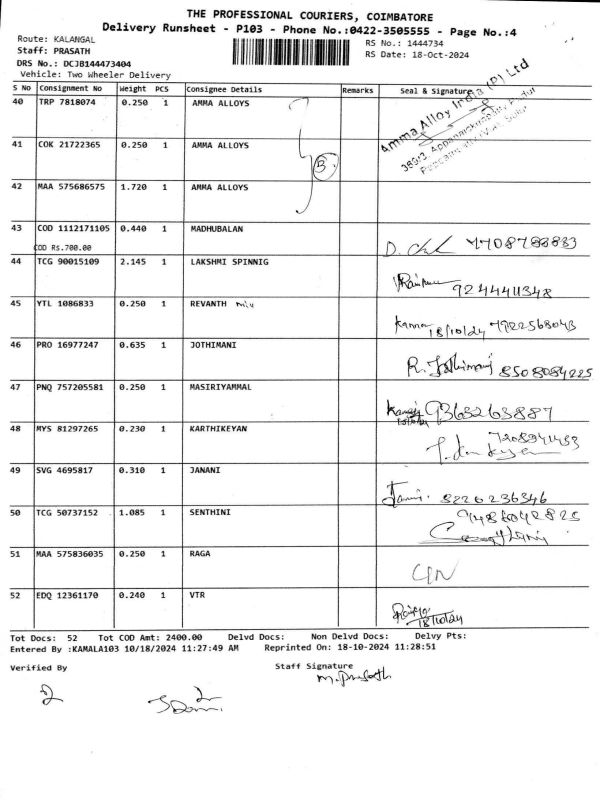 THE PROFESSIONAL COURIERS, COIMBATORE
Delivery Runsheet - P103 - Phone No.:0422-3505555 - Page No.:4
Route: KALANGAL RS No.: 1444734
Staff: PRASATH RS Date: 18-Oct-2024
DRS No.: DCJB144473404
Vehicle: Two Wheeler Delivery
S No Consignment No Weight PCS Consignee Details Remarks Seal & Signature
Amma Alloy India (P) Ltd
40 TRP 7818074 0.250 1 AMMA ALLOYS
41 COK 21722365 0.250 1 AMMA ALLOYS
B
42 MAA 575686575 1.720 1 AMMA ALLOYS
43 COD 1112171105 0.440 1 MADHUBALAN
COD Rs.700.00
44 TCG 90015109 2.145 1 LAKSHMI SPINNIG
45 YTL 1086833 0.250 1 REVANTH
18/10/24
46 PRO 16977247 0.635 1 JOTHIMANI
R. Jothimani 8508084225
47 PNQ 757205581 0.250 1 MASIRIYAMMAL
9363263887
48 MYS 81297265 0.230 1 KARTHIKEYAN
49 SVG 4695817 0.310 1 JANANI
50 TCG 50737152 1.085 1 SENTHINI
51 MAA 575836035 0.250 1 RAGA
52 EDQ 12361170 0.240 1 VTR
18/10/24
Tot Docs: 52 Tot COD Amt: 2400.00 Delvd Docs: Non Delvd Docs: Delvy Pts:
Entered By :KAMALA103 10/18/2024 11:27:49 AM Reprinted On: 18-10-2024 11:28:51
Verified By Staff Signature
M. Prasath